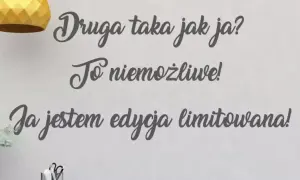 Druga taka jak ja?
To niemożliwe!
Ja jestem edycja limitowana!